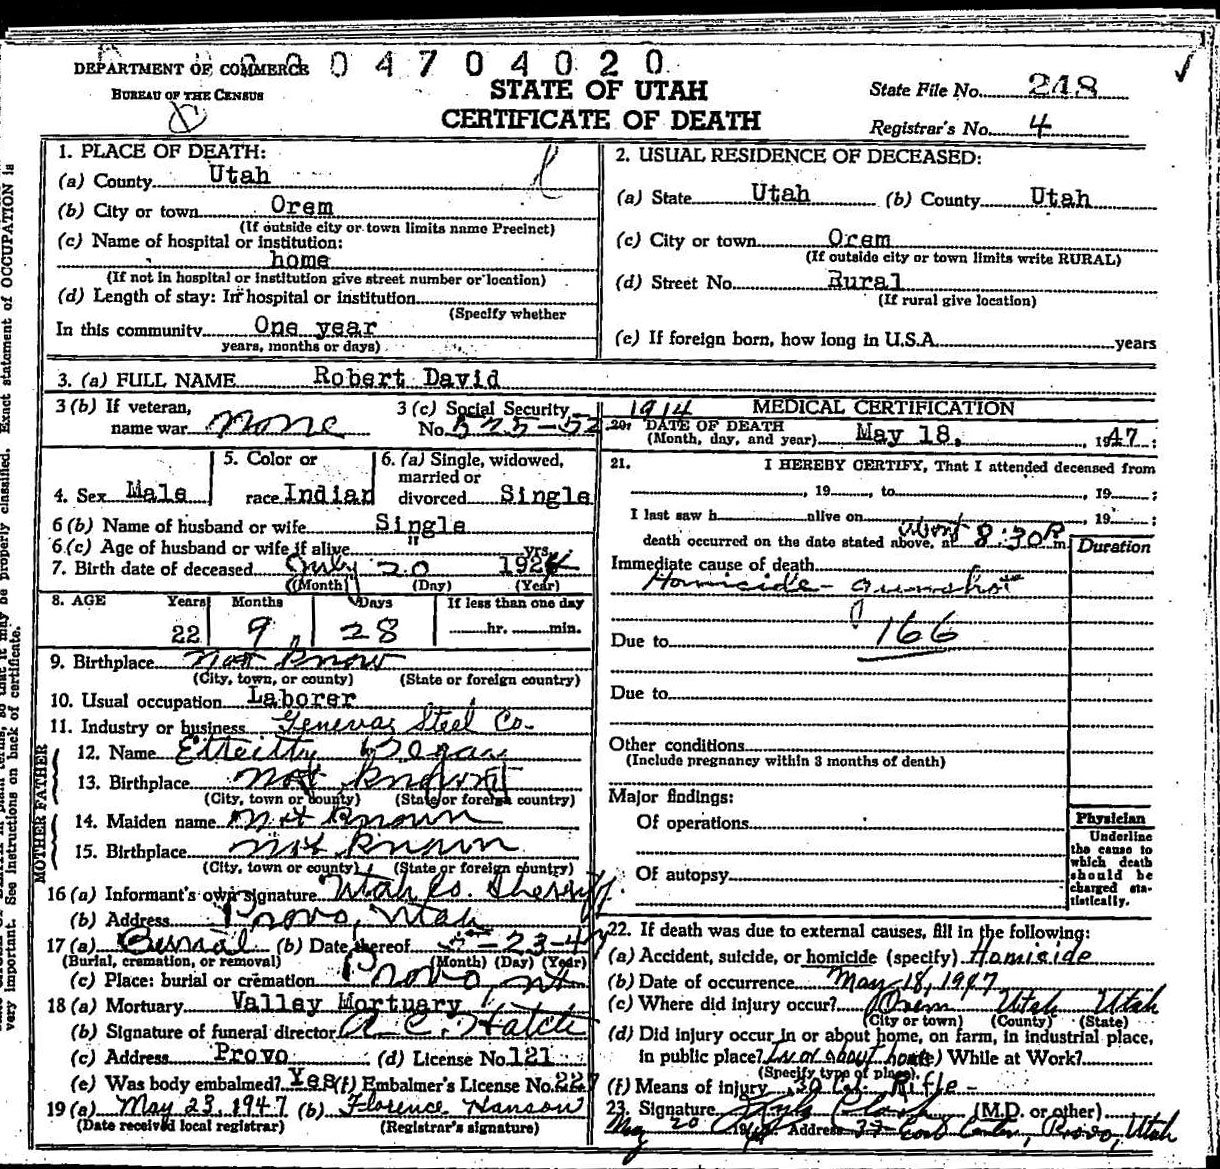 004704020
DEPARTMENT OF COMMERCE
BUREAU OF THE CENSUS
STATE OF UTAH
CERTIFICATE OF DEATH
State File No. 248
Registrar's No. 4
1. PLACE OF DEATH:
(a) County Utah
(b) City or town Orem
(If outside city or town limits name Precinct)
(c) Name of hospital or institution:
home
(If not in hospital or institution give street number or location)
(d) Length of stay: In hospital or institution
(Specify whether
In this community One year
years, months or days)
2. USUAL RESIDENCE OF DECEASED:
(a) State Utah (b) County Utah
(c) City or town Orem
(If outside city or town limits write RURAL)
(d) Street No. Rural
(If rural give location)
(e) If foreign born, how long in U.S.A. years
3. (a) FULL NAME Robert David
3 (b) If veteran, name war None
3 (c) Social Security No. 525-52 1914
4. Sex Male
5. Color or race Indian
6. (a) Single, widowed, married or divorced Single
6 (b) Name of husband or wife Single
6 (c) Age of husband or wife if alive " yrs.
7. Birth date of deceased July 20 1924
(Month) (Day) (Year)
8. AGE Years Months Days If less than one day
22 9 28 hr. min.
9. Birthplace not know
(City, town, or county) (State or foreign country)
10. Usual occupation Laborer
11. Industry or business Geneva Steel Co.
FATHER
12. Name
13. Birthplace not known
(City, town or county) (State or foreign country)
MOTHER
14. Maiden name not known
15. Birthplace not known
(City, town or county) (State or foreign country)
16 (a) Informant's own signature Utah Co. Sheriff
(b) Address Provo, Utah
17 (a) Burial (b) Date thereof 5-23-47
(Burial, cremation, or removal) (Month) (Day) (Year)
(c) Place: burial or cremation Provo, Ut
18 (a) Mortuary Valley Mortuary
(b) Signature of funeral director A. C. Hatch
(c) Address Provo (d) License No. 121
(e) Was body embalmed? Yes (f) Embalmer's License No. 227
19 (a) May 23, 1947 (b) Florence Hanson
(Date received local registrar) (Registrar's signature)
MEDICAL CERTIFICATION
20. DATE OF DEATH
(Month, day, and year) May 18, 1947;
21. I HEREBY CERTIFY, That I attended deceased from
, 19 , to , 19 ;
I last saw h alive on , 19 ;
death occurred on the date stated above, at about 8:30 P m.
Duration
Immediate cause of death
Homicide - Gunshot
166
Due to
Due to
Other conditions
(Include pregnancy within 3 months of death)
Major findings:
Of operations
Of autopsy
Physician
Underline the cause to which death should be charged statistically.
22. If death was due to external causes, fill in the following:
(a) Accident, suicide, or homicide (specify) Homicide
(b) Date of occurrence May 18, 1947
(c) Where did injury occur? Orem Utah Utah
(City or town) (County) (State)
(d) Did injury occur in or about home, on farm, in industrial place,
in public place? In or about home (e) While at Work?
(Specify type of place)
(f) Means of injury 30 Cal. Rifle -
23. Signature (M.D. or other)
May 20 194 Address 37 East Center, Provo, Utah
very important. See instructions on back of certificate.
so that it may be properly classified. Exact statement of OCCUPATION is